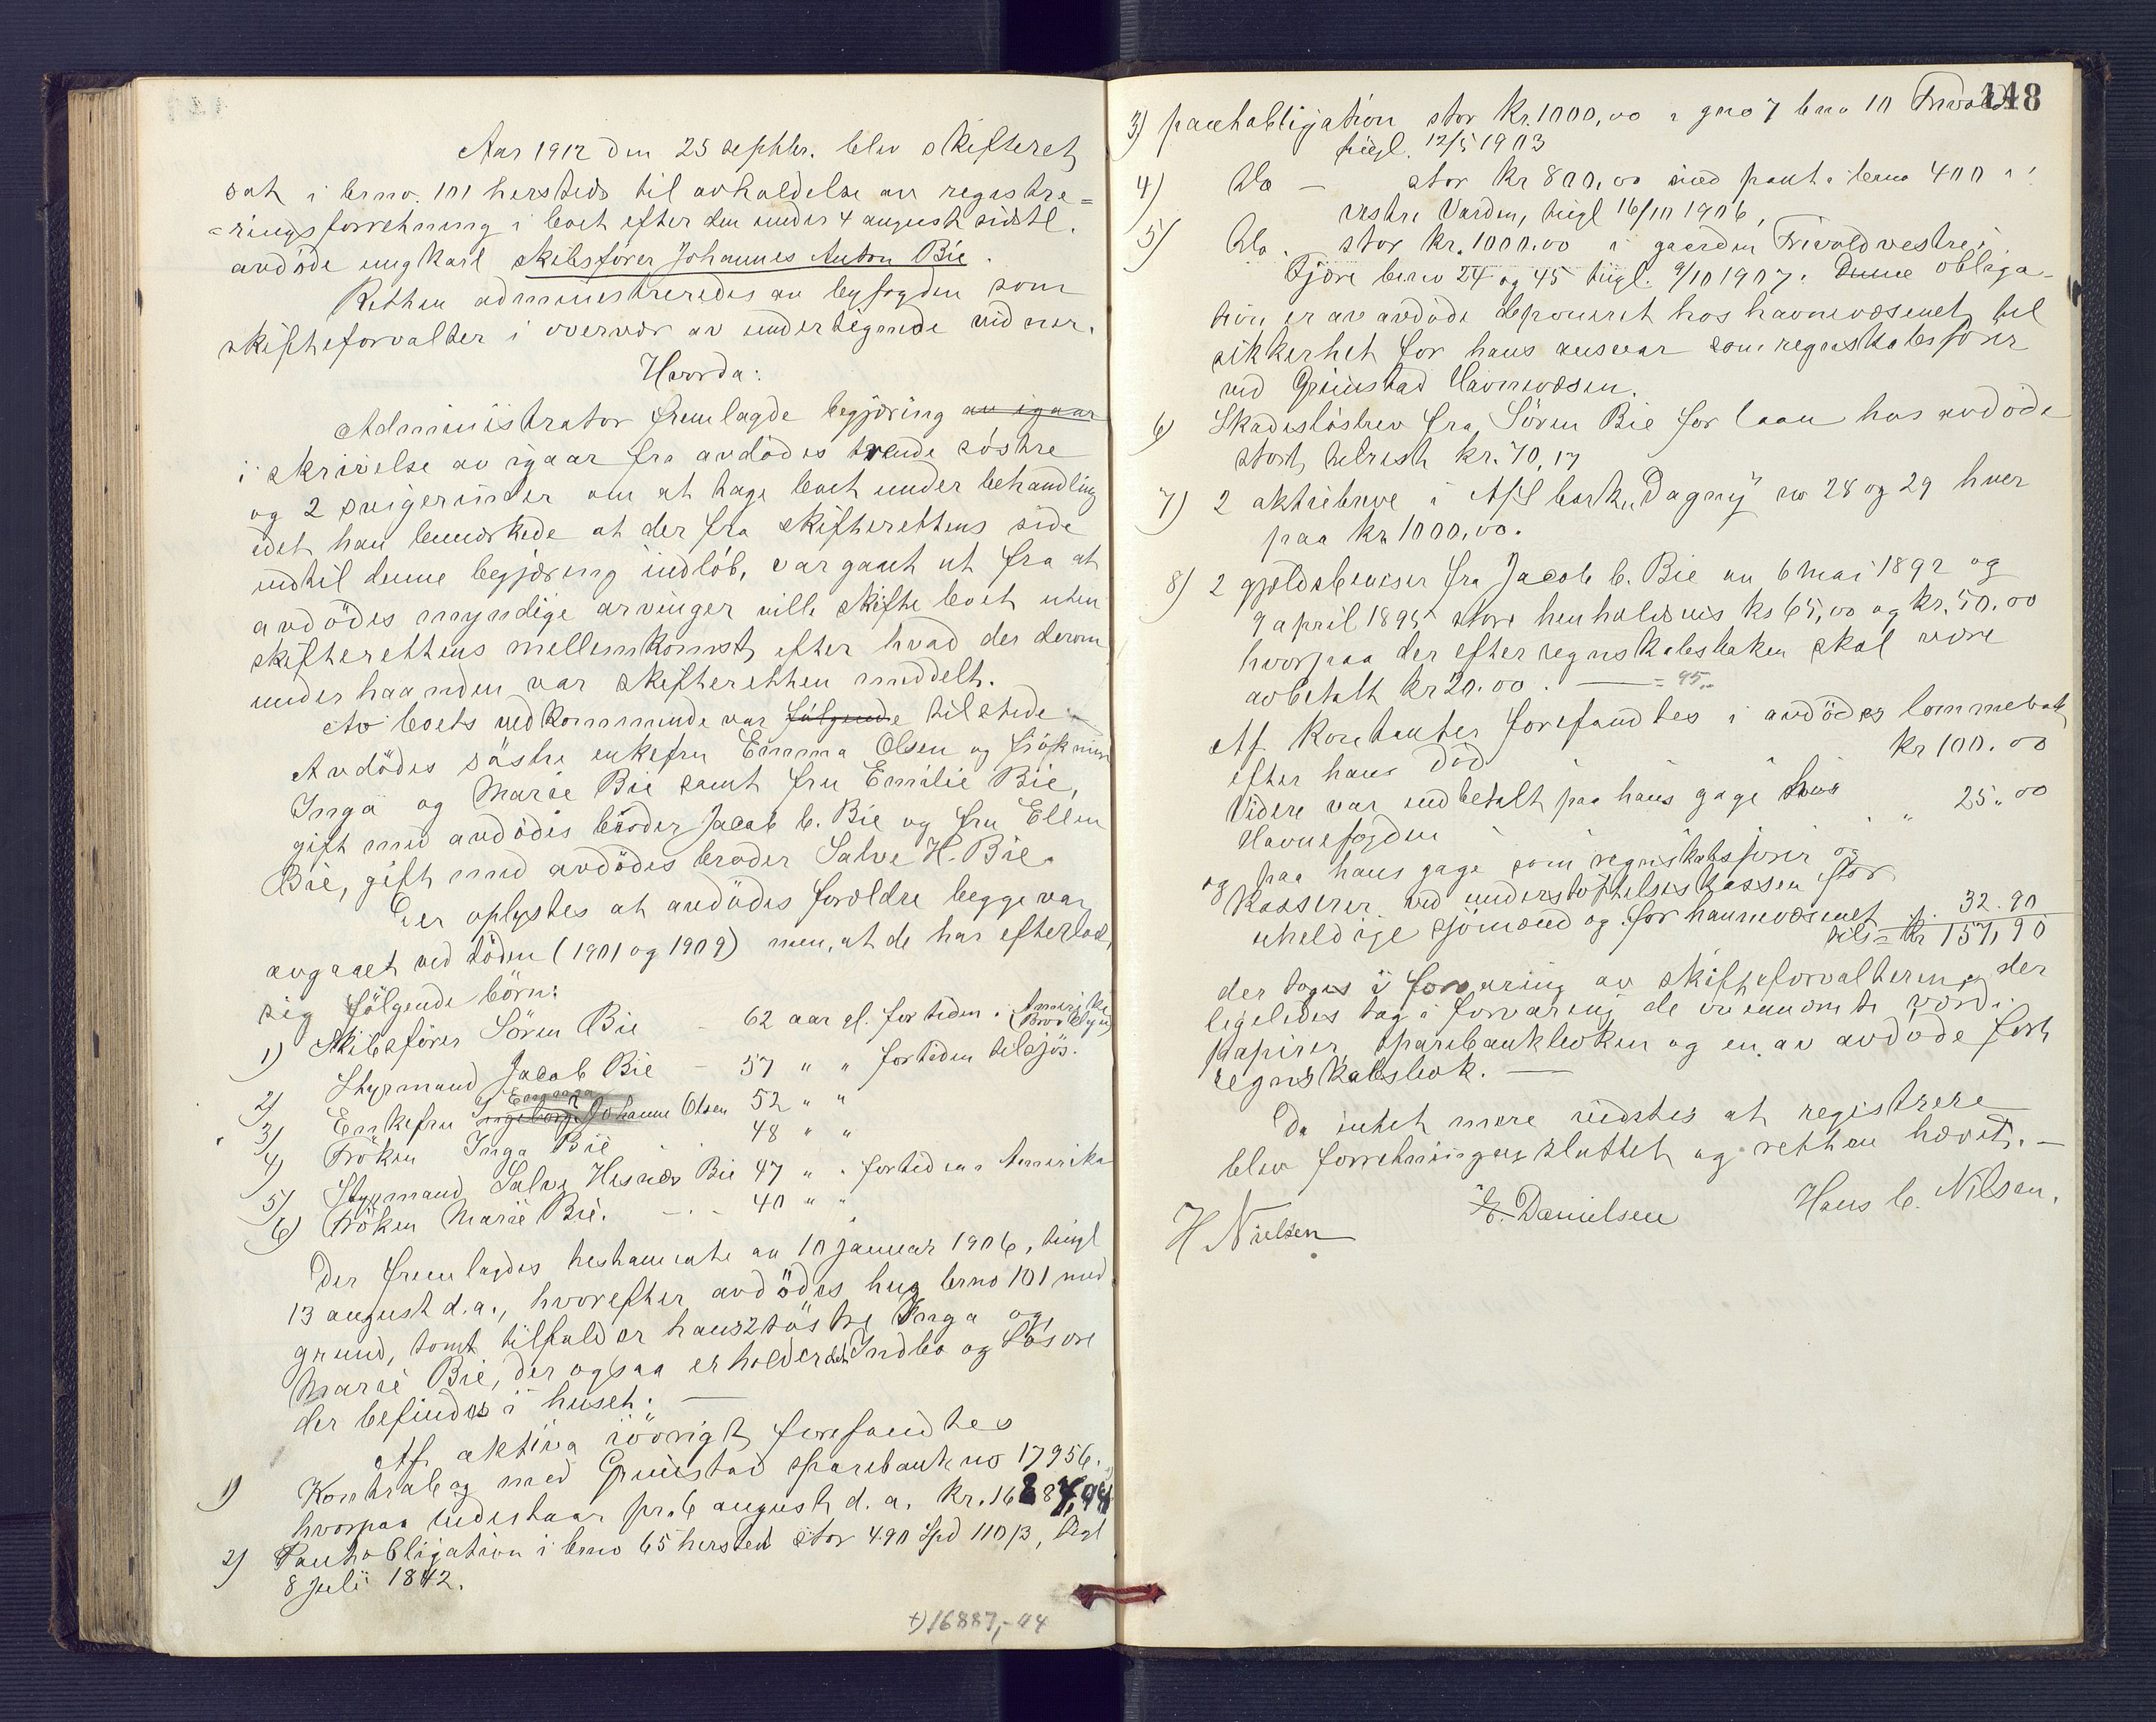 Aar 1912 den 25 septbr. blev skifteret
sat i brno. 101 hersteds til avholdelse av registre=
=ringsforretning i boet efter den under 4 august sidstl.
avdöde ungkarl skibsförer Johannes Anton Bie.
Retten administreredes av byfogden som
skifteforvalter i overvær av undertegnede vidner.
Hvorda:
Administrator fremlagde begjæring av igaar
i skrivelse av igaar fra avdödes trende söstre
og 2 svigerinder om at tage boet under behandling
idet han bemerkede at der fra skifterettens side
indtil denne begjæring indlöb, var gaat ut fra at
avdödes myndige arvinger ville skifte boet uten
skifterettens mellemkomst, efter hvad der derom
underhaanden var skifteretten meddelt.
Av boets vedkommende var fölgende tilstede
Avdödes söstre enkefru Emma Olsen og fröknine
Inga og Marie Bie samt fru Emilie Bie,
gift med avdödes broder Jacob C. Bie og fru Ellen
Bie, gift med avdödes broder Salve H. Bie.
Der oplystes at avdödes forældre begge var
avgaaet ved döden (1901 og 1909) men, at de har efterlat
sig fölgende börn:
1) Skibsförer Sören Bie - 62 aar gl. for tiden i Amerika (Brooklyn)
2) Styrmand Jacob Bie - 57 " " fortiden tilsjös.
3) Enkefru Ingeborg Emma Johanne Olsen 52 " "
4) Fröken Inga Bie 48 " "
5) Styrmand Salve Hesnæs Bie 47 " " fortiden i Amerika
6) Fröken Marie Bie. - - 40 " "
Der fremlagdes testamente av 10 januar 1906, tingl
13 august d.a., hvorefter avdödes hus brno 101 med
grund, tomt tilfalder hans 2 söstre Inga og
Marie Bie, der ogsaa erholder det Indbo og Lösöre
der befindes i huset. —
Af aktiva iövrigt forefandtes
1) Kontrabog med Grimstad sparebank no 17956.
hvorpaa indestaar pr. 6 august d.a. Kr. 16887,94
2) Pantobligation i brno 65 hersted stor 490 Spd 110 β, tigl
8 Juli 1842.
+) 16887,-94
148
3) pantobligation stor Kr. 1000,00 i gno 7 bno 10 Frivold
tigl. 12/5 1903
4) Do — stor Kr 800,00 med pant i brno 400 i
vestre Varden, tigl 16/10 1906,
5) Do. stor kr. 1000.00 i gaarden Frivold vestre i
Fjære bno 24 og 45 tigl. 9/10 1907. Denne obliga-
tion er av avdöde deponeret hos havnevæsenet til
sikkerhet for hans ansvar som regnskabsförer
ved Grimstad Havnevæsen.
6) Skadeslösbrev fra Sören Bie for laan hos avdöde
stort, tilrest kr. 70,17
7) 2 aktiebreve i A/S bark "Dagny" no 28 og 29 hver
paa kr 1000,00.
8) 2 gjældsbeviser fra Jacob C. Bie av 6 mai 1892 og
9 april 1895 stor henholdsvis kr 65,00 og kr. 50.00
hvorpaa der efter regnskabsboken skal være
avbetalt kr 20.00. — = 95,-
Af Kontanter forefandtes i avdödes lommebok
efter hans död kr 100.00
Videre var indbetalt paa hans gage hos
Havnefogden " 25.00
og paa hans gage som regnskabsförer og
Kasserer ved understöttelseskassen for
uheldige sjömænd og for havnevæsenet " 32.90
tils = Kr 157,90
der toges i forvaring av skifteforvalteren, der
ligeledes tog i forvaring de ovennevnte værdi-
papirer, sparebankboken og en av avdöde fört
regnskabsbok. —
Da intet mere vidstes at registrere
blev forretningen sluttet og retten hævet. —
H Nielsen E. Danielsen Hans C. Nilsen.